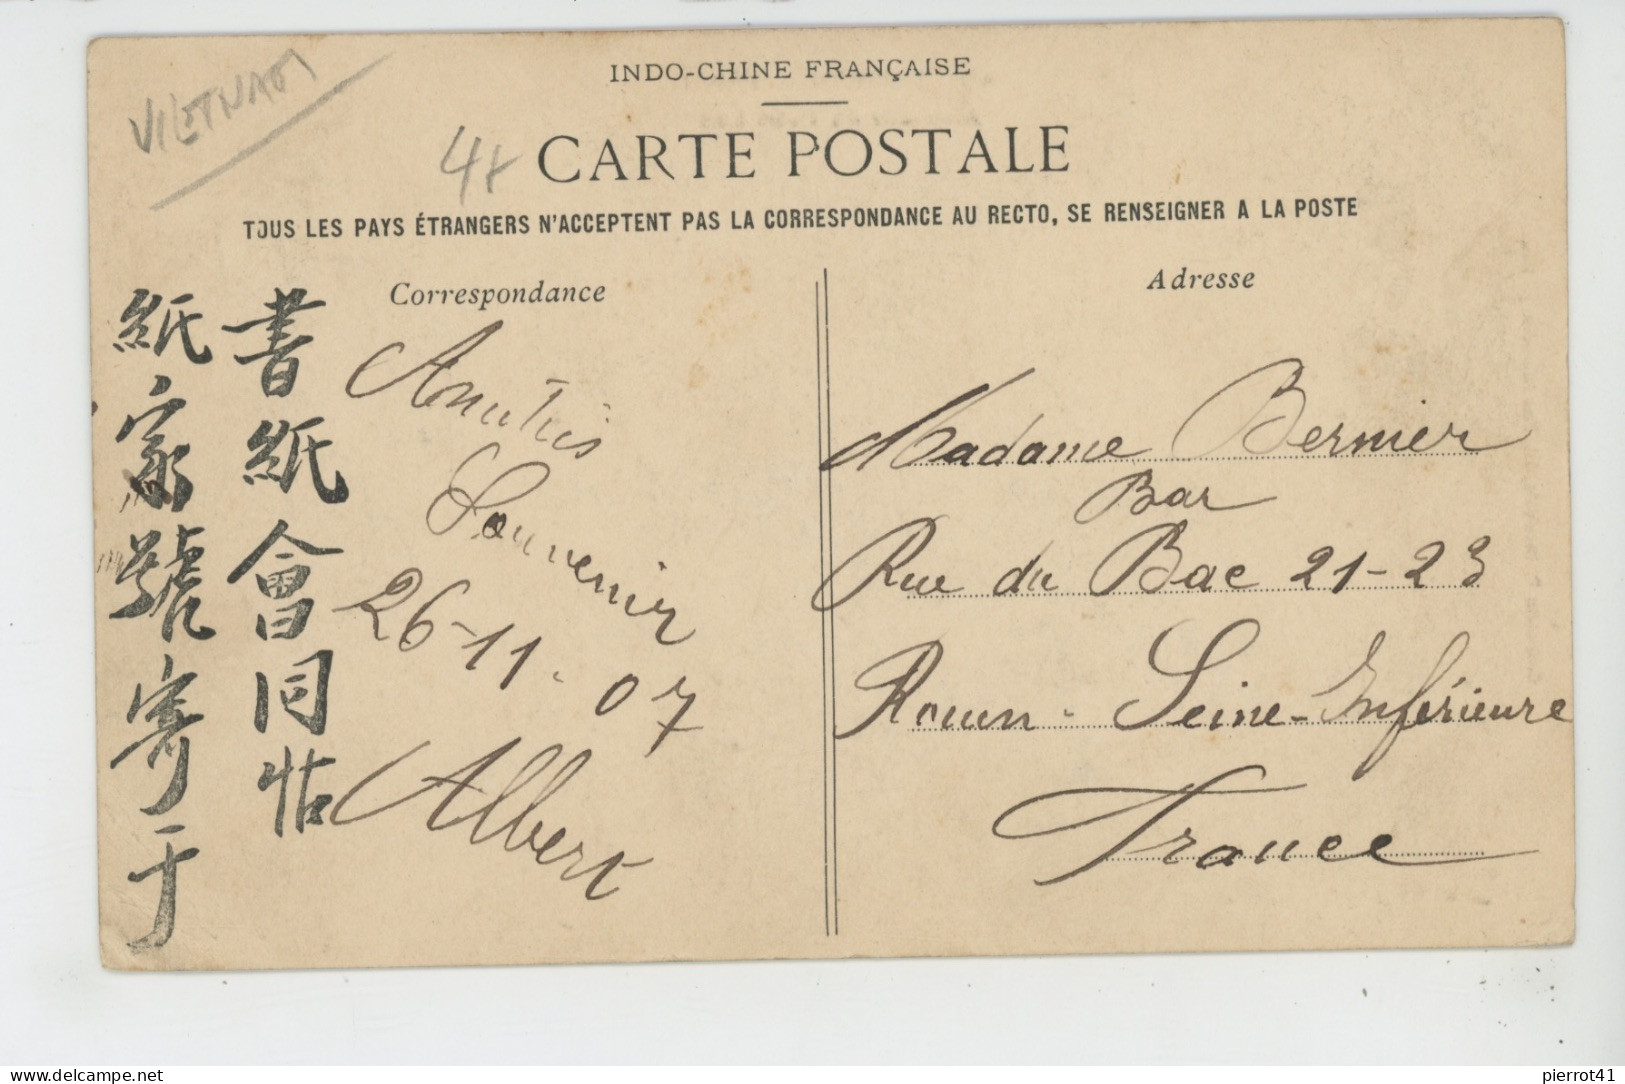 VIETNAM
INDO-CHINE FRANÇAISE
4x
CARTE POSTALE
TOUS LES PAYS ÉTRANGERS N'ACCEPTENT PAS LA CORRESPONDANCE AU RECTO, SE RENSEIGNER A LA POSTE
Correspondance
書紙會同怗
紙家號寄于
Amitiés
Souvenir
26-11-07
Albert
Adresse
Madame Bernier
Bar
Rue du Bac 21-23
Rouen - Seine-Inférieure
France
www.delcampe.net
pierrot41